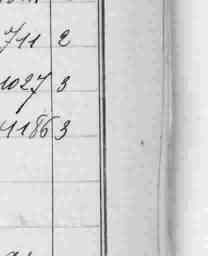 711 2
1027 3
1186 3